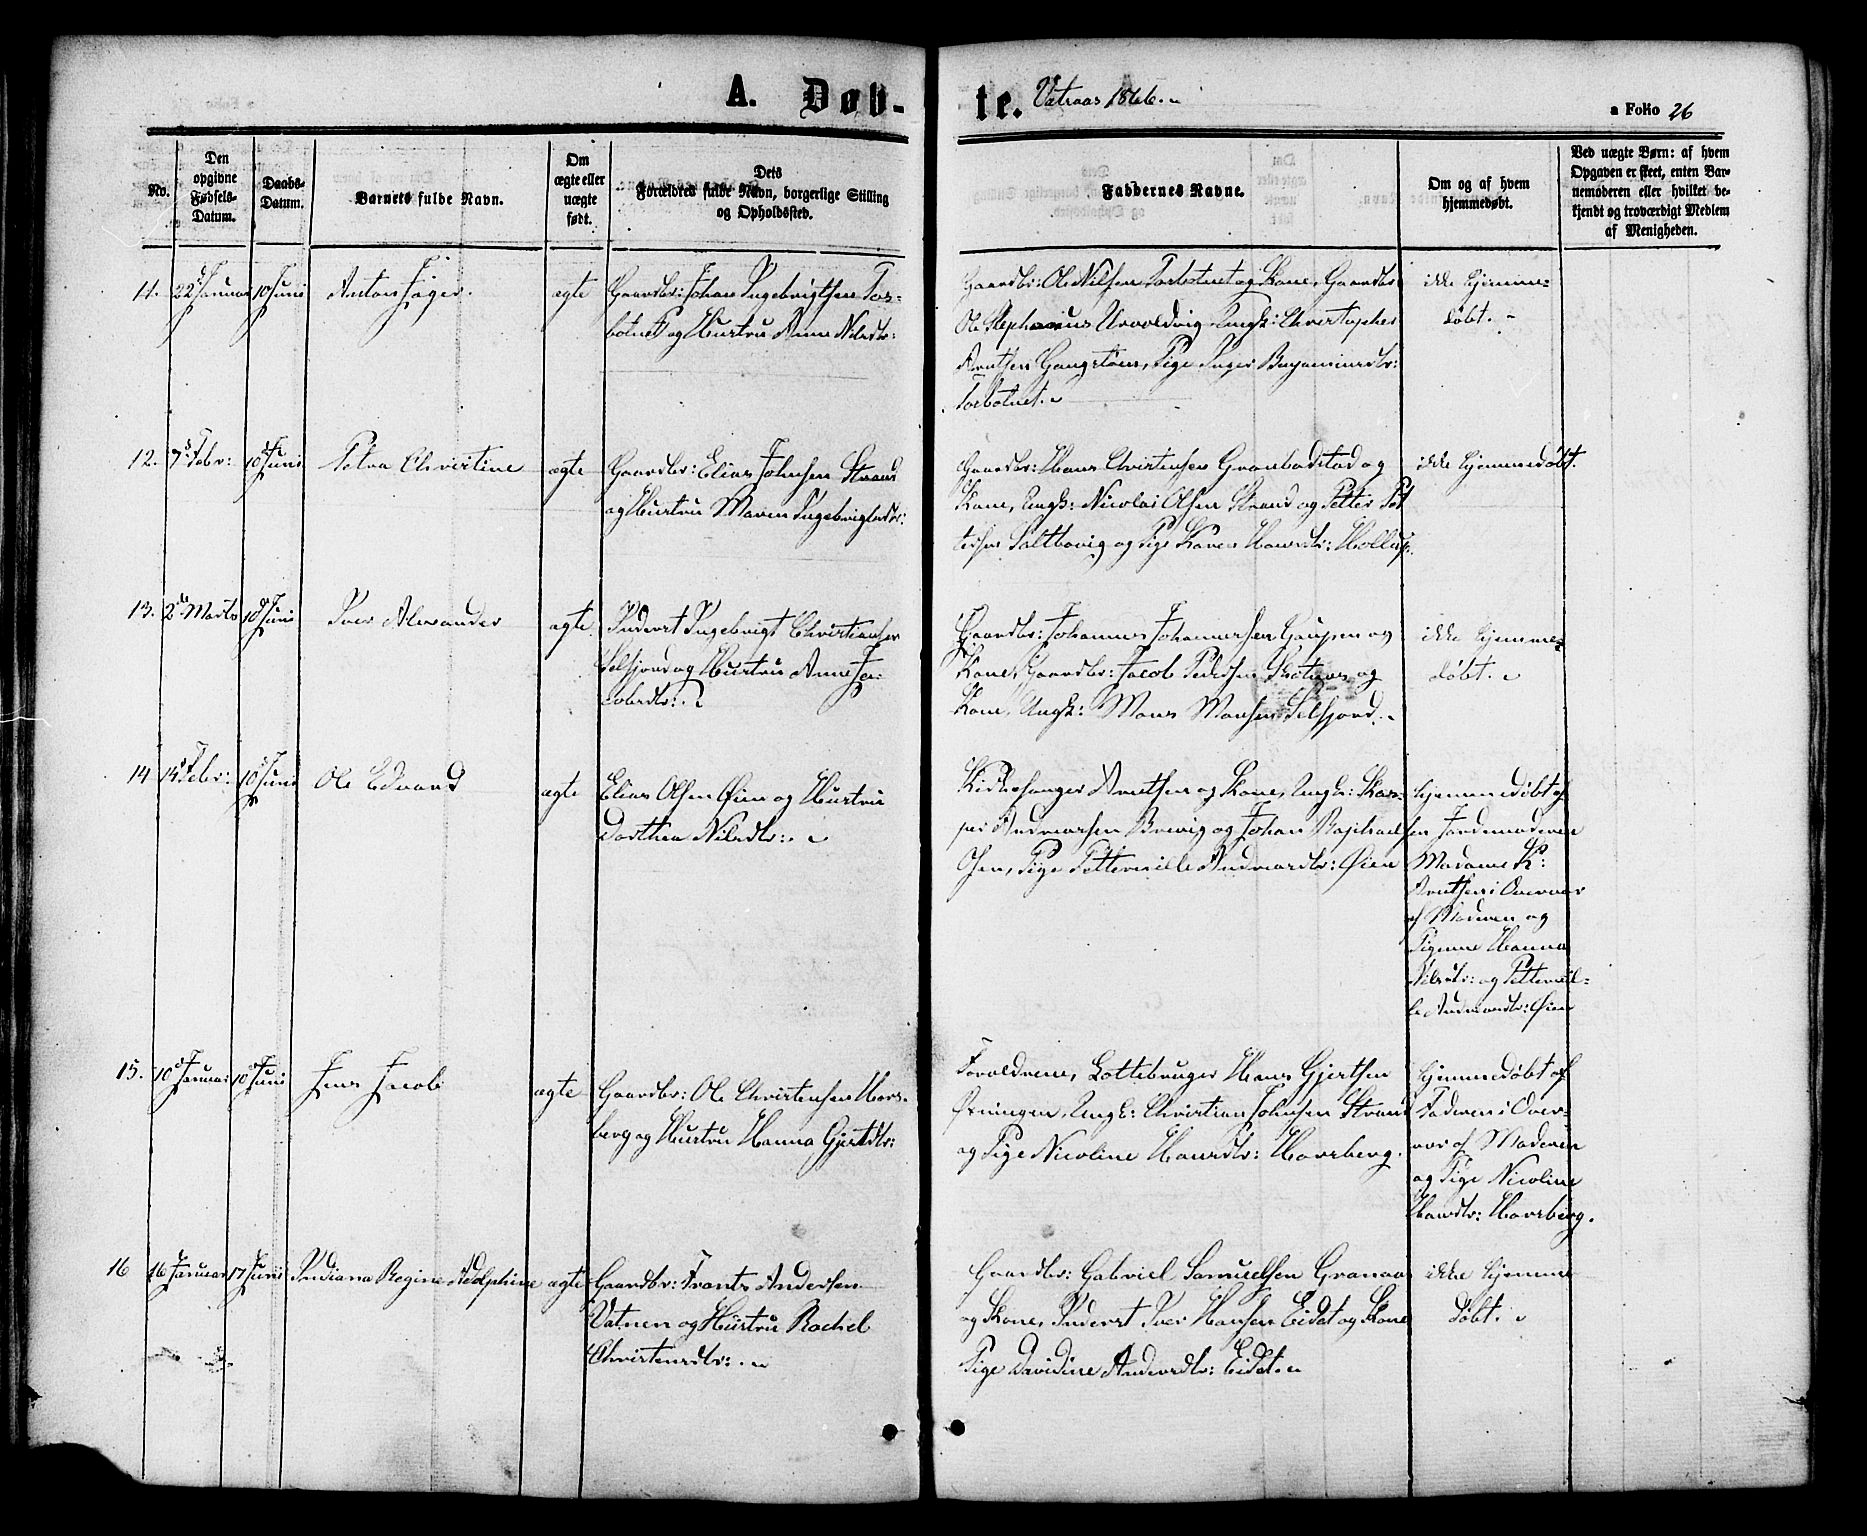 A. Døb-
te. Vatraas 1866.
a Folio 26
No.
Den opgivne Fødsels-Datum.
Daabs-Datum.
Barnets fulde Navn.
Om ægte eller uægte født.
Dets Forældres fulde Navn, borgerlige Stilling og Opholdssted.
Faddernes Navne.
Om og af hvem hjemmedøbt.
Ved uægte Børn: af hvem Opgaven er skeet, enten Barnemoderen eller hvilket bekjendt og troværdigt Medlem af Menigheden.
11. 22 Januar 10 Juni Anton Jøger. ægte
Gaardbr: Johan Ingebrigtsen Tor-
botnet og Hustru Anne Nilsdtr:
Gaardbr: Ole Nilsen Torbotnet og Kone, Gaardbr
Ole Stephanius Urvoldvig Ungk: Christopher
Arntsen Gangstøen, Pige Inger Benjaminsdtr:
Torbotnet.
ikke hjemme-
døbt.
12. 7 Febr: 10 Juni Petra Christine ægte
Gaardbr: Elias Johnsen Strand
og Hustru Maren Ingebrigtsdtr:
Gaardbr: Hans Christensen Granbostad og
Kone, Ungk: Nicolai Olsen Strand og Petter Pet
tersen Saltbovig og Pige Karen Hansdtr:
ikke hjemmedøbt.
13. 2 Marts 10 Juni Iver Alexander ægte
Inderst Ingebrigt Christiansen
Selfjord og Hustru Anne Ja-
cobsdtr:
Gaardbr: Johannes Johannessen Gaupen og
Kone, Gaardbr: Jacob Pedersen og
Kone, Ungk: Mons Monsen Selfjord.
ikke hjemme-
døbt.
14 14 Febr: 10 Juni Ole Edvard ægte
Elias Olsen Øien og Hustru
Dorthea Nilsdtr:
Kirkesanger Arntsen og Kone, Ungk: Kas-
per Andreassen Brevig og Johan Raphael
Olsen, Pige Petternille Andreasdtr: Øien
hjemmedøbt af
Jordemoderen
Madame K:
Arntsen i Overvær
af Moderen og
Pigerne Hanna
Nilsdtr: og Petternil-
le Andreasdtr: Øien
15. 10 Januar 10 Juni Jens Jacob ægte
Gaardbr: Ole Christensen Hors-
berg og Hustru Hanna Gjertsdtr:
Forældrene, Lottebruger Hans Gjertsen
Ungk: Christian Johnsen Strand
og Pige Nicoline Hansdtr: Horsberg.
hjemmedøbt af
Faderen i Over-
vær af Moderen
og Pige Nicoline
Hansdtr: Horsberg.
16 16 Januar 17 Juni Indiana Regine Adolphine ægte
Gaardbr: Frants Andersen
Vatnen og Hustru Rachel
Christensdtr:
Gaardbr: Gabriel Samuelsen Granaas
og Kone, Inderst Iver Hansen Eidet og Kone
Pige Davidine Andersdtr: Eidet.
ikke hjemme
døbt.